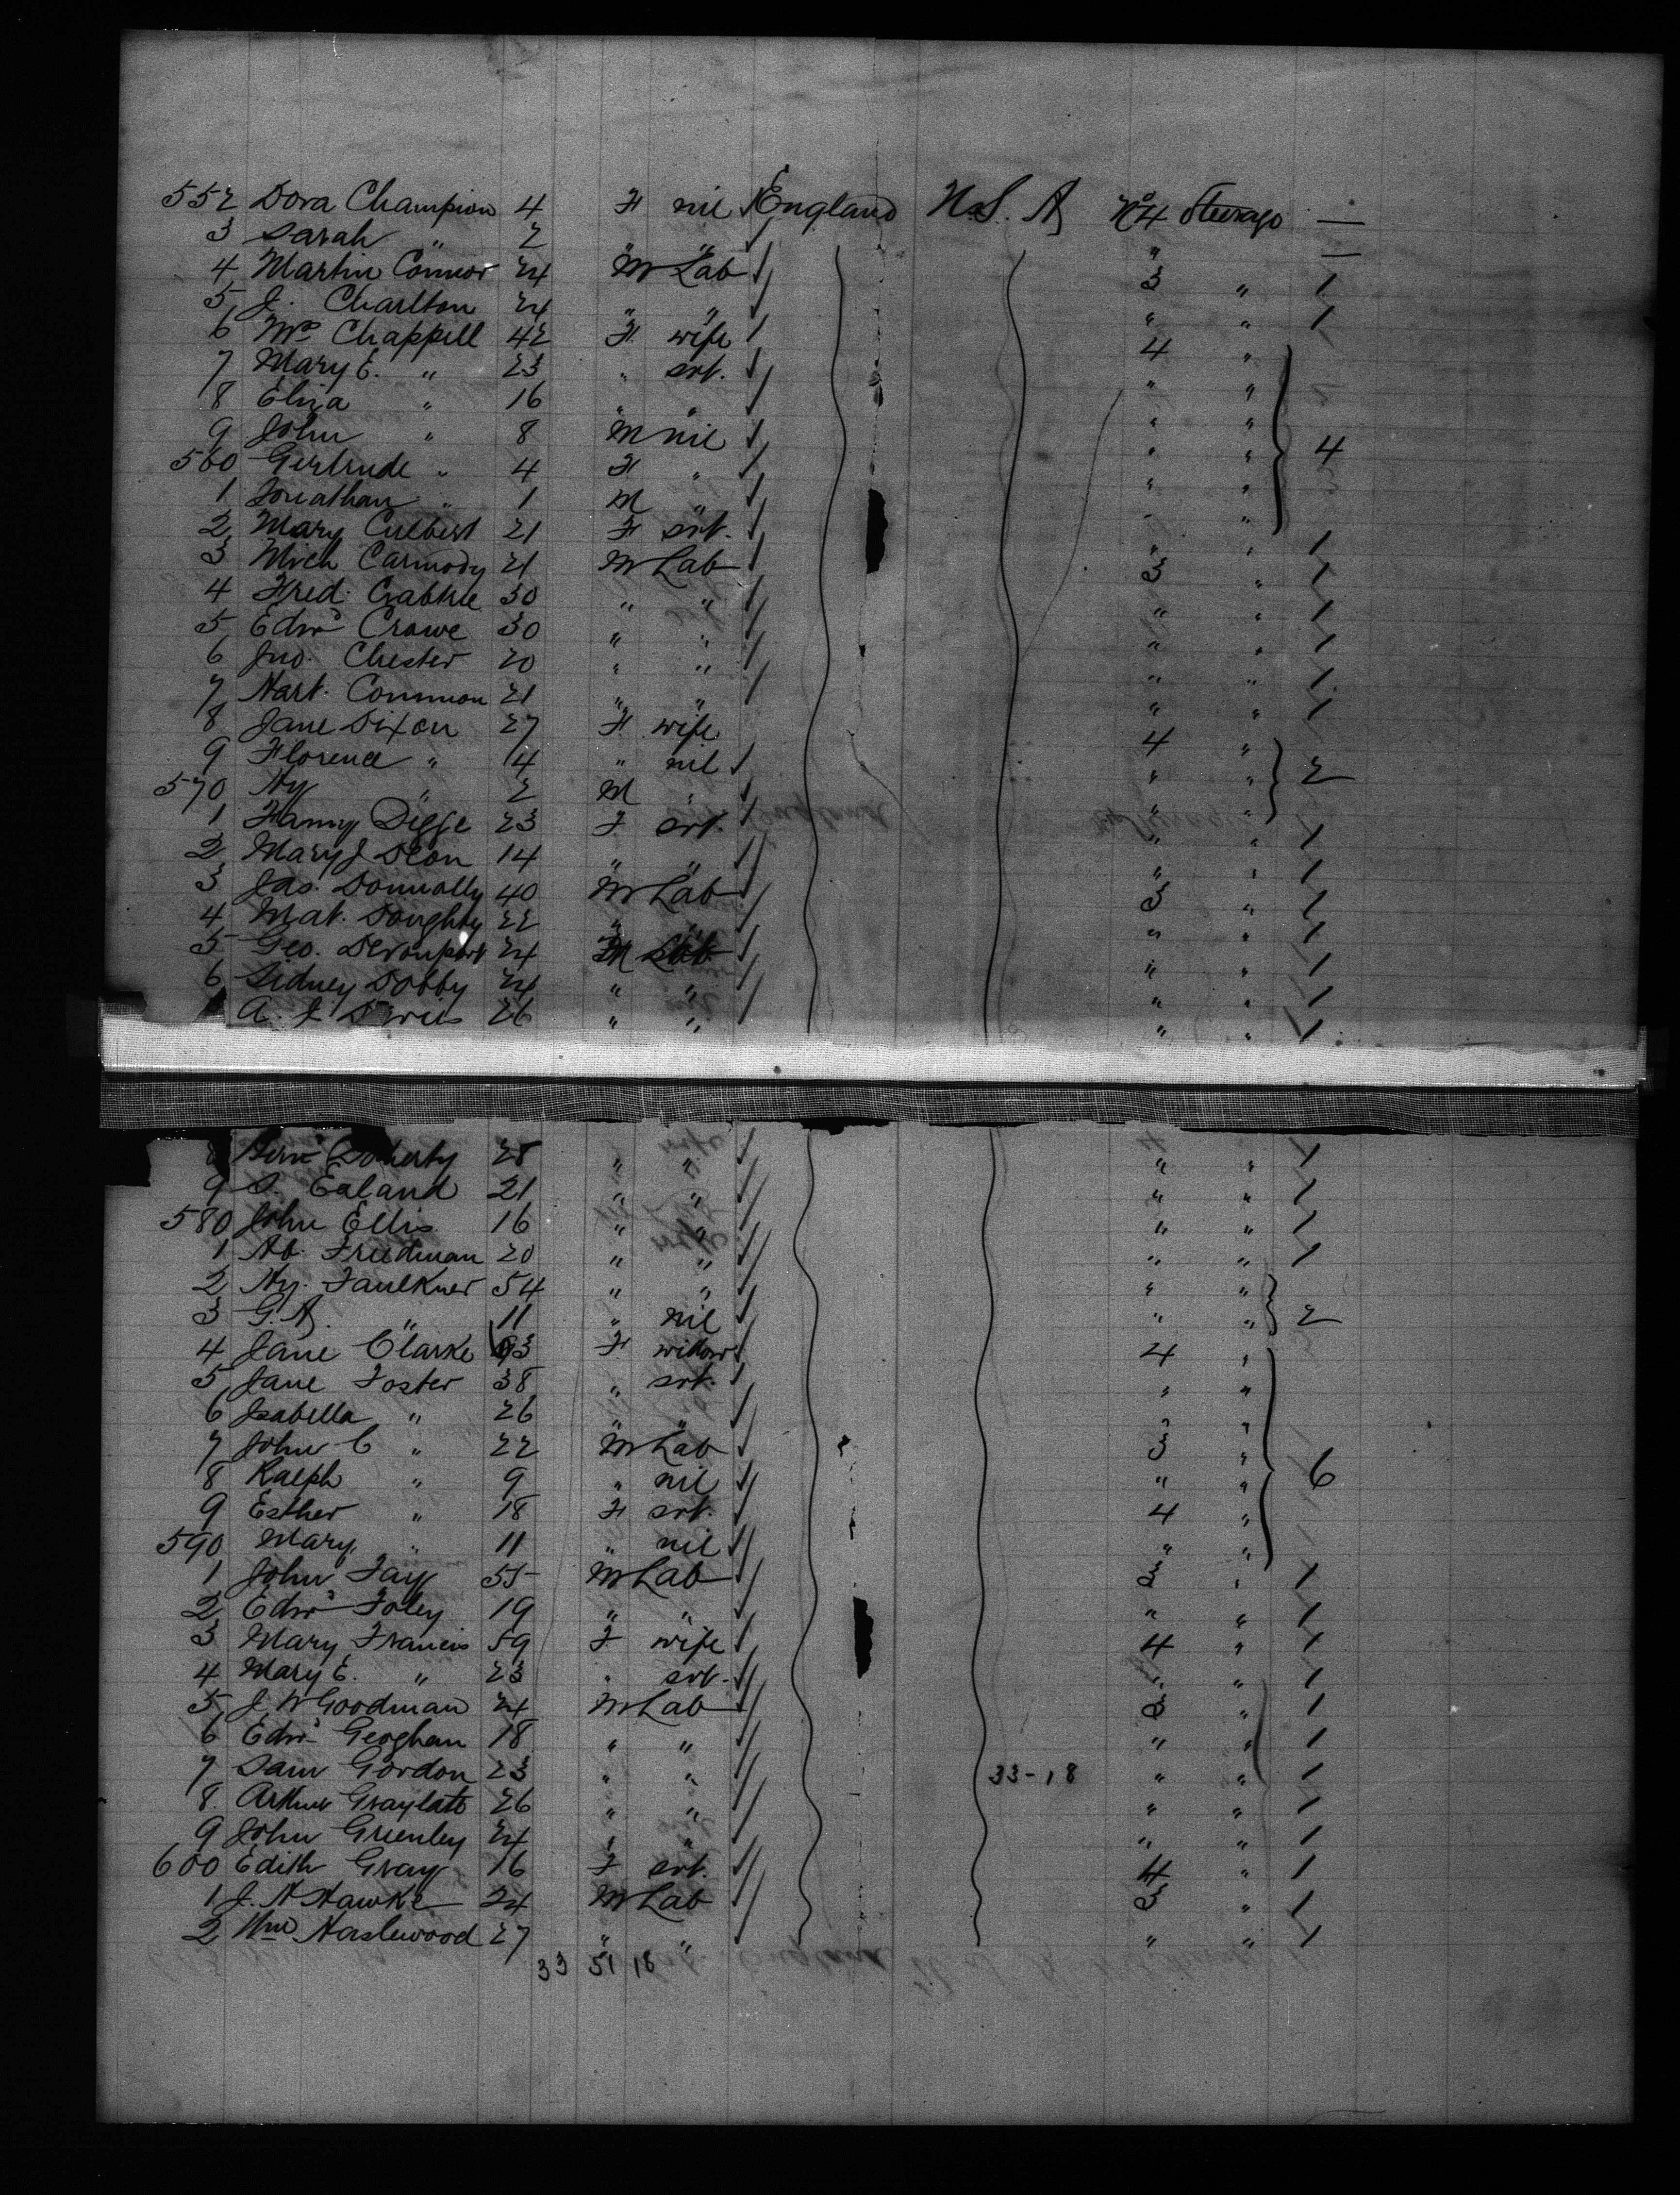 552 Dora Champion 4 F nil England U.S. A No 4 Steerage —
3 Sarah " 2 " " " —
4 Martin Connor 24 M Lab 3 " 1
5 J. Charlton 24 " " " " 1
6 Mrs Chappell 42 F wife 4 "
7 Mary E. " 23 " svt. " "
8 Eliza " 16 " " " "
9 John " 8 M nil " " 4
560 Gertrude " 4 F " " "
1 Jonathan " 1 M " " "
2 Mary Culbert 21 F svt. " " 1
3 Mich Carmody 21 M Lab 3 " 1
4 Fred. Crabtree 30 " " " " 1
5 Edwd Crowe 30 " " " " 1
6 Jno. Chester 20 " " " " 1
7 Hart. Common 21 " " " " 1
8 Jane Dixon 27 F wife 4 "
9 Florence " 4 " nil " " 2
570 Hy " 2 M " " "
1 Fanny 23 F svt. " " 1
2 Mary J 14 " " " " 1
3 Jas. Donnolly 40 M Lab 3 " 1
4 Mat. Doughty 22 " " " " 1
5 Geo. Devonport 24 M Lab " " 1
6 Sidney Dobby 24 " " " " 1
A. J. 26 " " " " 1
8 Doherty 28 " " " " 1
9 S. Ealand 21 " " " " 1
580 John Ellis 16 " " " " 1
1 Ab. Freedman 20 " " " " 1
2 Hy. Faulkner 54 " " " "
3 G. A. " 11 " nil " " 2
4 Jane Clarke 93 F widow 4 "
5 Jane Foster 38 " svt. " "
6 Isabella " 26 " " "
7 John C " 22 M Lab 3 "
8 Ralph " 9 " nil " " 6
9 Esther " 18 F svt. 4 "
590 Mary " 11 " nil " "
1 John Fay 55 M Lab 3 " 1
2 Edwd Foley 19 " " " " 1
3 Mary Francis 59 F wife 4 " 1
4 Mary E. " 23 " svt. " " 1
5 J. W Goodman 24 M Lab 3 " 1
6 Edwd Geoghan 18 " " " " 1
7 Sam Gordon 23 " " 33-18 " " 1
8 Arthur 26 " " " " 1
9 John Greenley 24 " " " " 1
600 Edith Gray 16 F svt. 4 " 1
1 J. H Hawke 24 M Lab 3 " 1
2 Wm Haslewood 27 " " " " 1
33 51 18